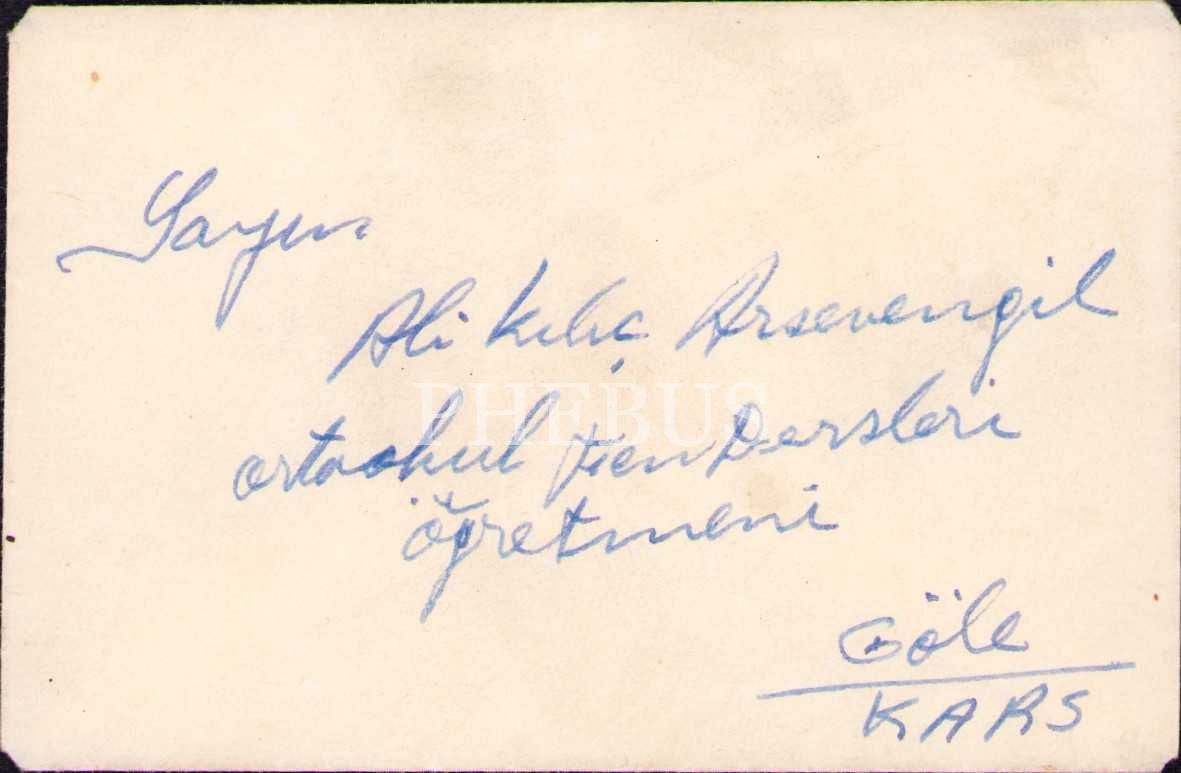 Sayın
Ali Kılıç Arsevengil
ortaokul Fen Dersleri
PHEBUS
öğretmeni
Göle
KARS